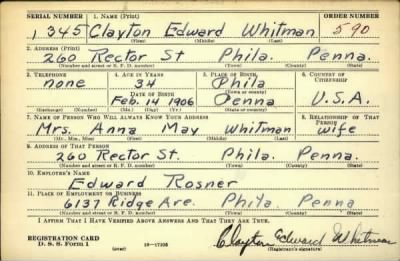 SERIAL NUMBER 1. NAME (Print) ORDER NUMBER
1345 Clayton Edward Whitman 590
(First) (Middle) (Last)
2. ADDRESS (Print)
260 Rector St Phila. Penna.
(Number and street or R. F. D. number) (Town) (County) (State)
3. TELEPHONE 4. AGE IN YEARS 5. PLACE OF BIRTH 6. COUNTRY OF CITIZENSHIP
none 34 Phila
DATE OF BIRTH (Town or county)
Feb. 14 1906 Penna U.S.A.
(Exchange) (Number) (Mo.) (Day) (Yr.) (State or country)
7. NAME OF PERSON WHO WILL ALWAYS KNOW YOUR ADDRESS 8. RELATIONSHIP OF THAT PERSON
Mrs. Anna May Whitman wife
(Mr., Mrs., Miss) (First) (Middle) (Last)
9. ADDRESS OF THAT PERSON
260 Rector St. Phila. Penna.
(Number and street or R. F. D. number) (Town) (County) (State)
10. EMPLOYER'S NAME
Edward Rosner
11. PLACE OF EMPLOYMENT OR BUSINESS
6137 Ridge Ave. Phila. Penna
(Number and street or R. F. D. number) (Town) (County) (State)
I AFFIRM THAT I HAVE VERIFIED ABOVE ANSWERS AND THAT THEY ARE TRUE.
REGISTRATION CARD
D. S. S. Form 1 (over) 16—17105 Clayton Edward Whitman
(Registrant's signature)